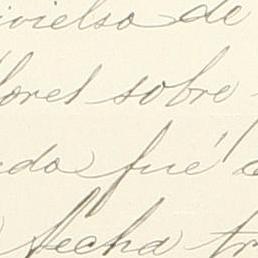 ivielso de
lores sobre
do fué"
fecha tr